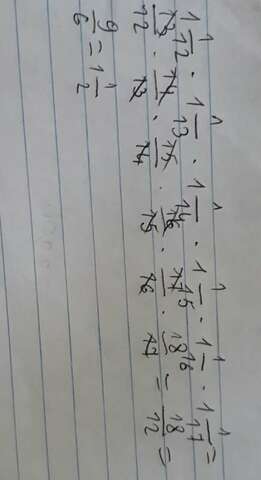 1 1/12 · 1 1/13 · 1 1/14 · 1 1/15 · 1 1/16 · 1 1/17 =
13/12 · 14/13 · 15/14 · 16/15 · 17/16 · 18/17 = 18/12 =
9/6 = 1 1/2